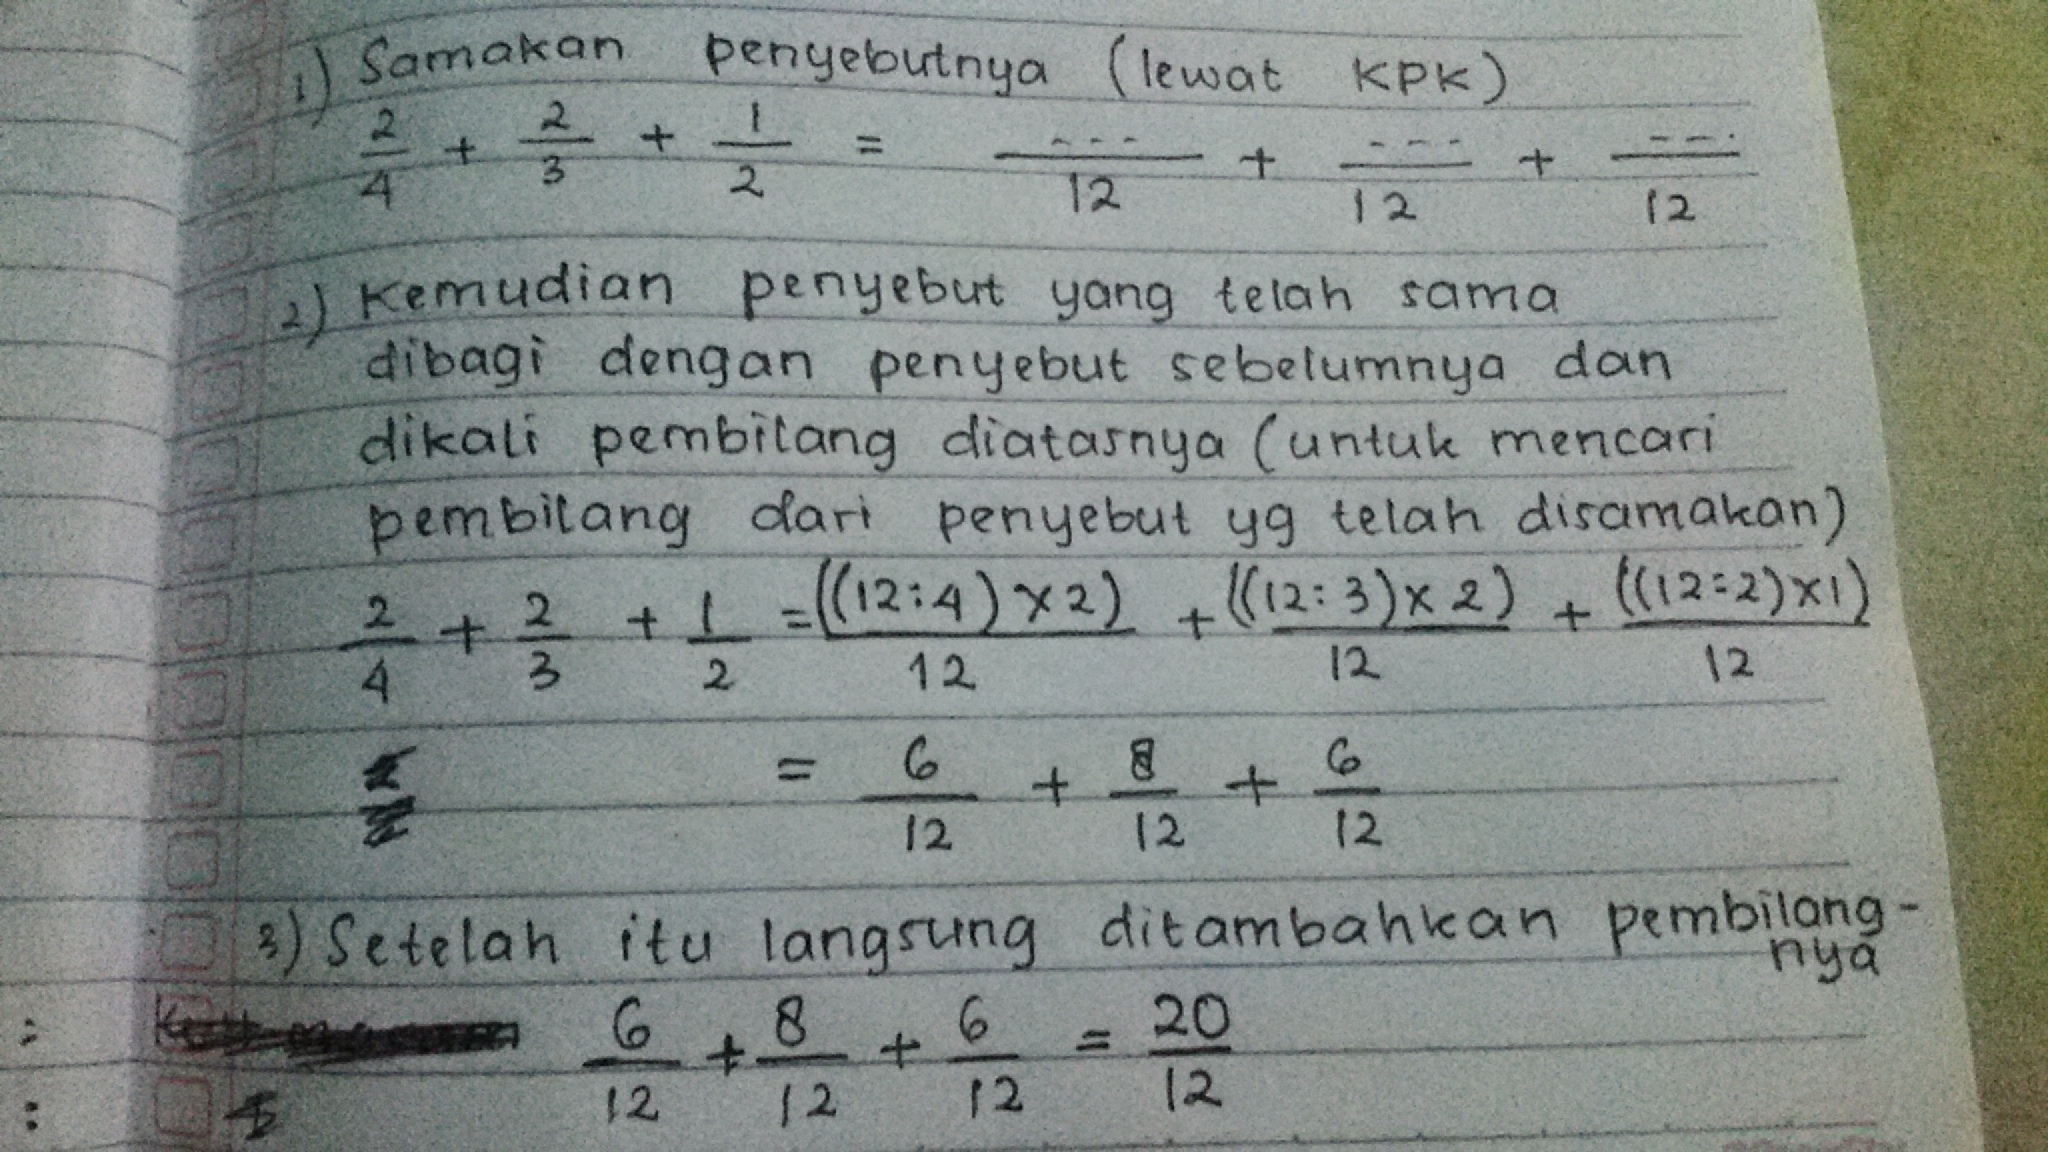 1) Samakan penyebutnya (lewat KPK)
2/4 + 2/3 + 1/2 = .../12 + .../12 + .../12
2) Kemudian penyebut yang telah sama
dibagi dengan penyebut sebelumnya dan
dikali pembilang diatasnya (untuk mencari
pembilang dari penyebut yg telah disamakan)
2/4 + 2/3 + 1/2 = ((12:4)×2)/12 + ((12:3)×2)/12 + ((12:2)×1)/12
= 6/12 + 8/12 + 6/12
3) Setelah itu langsung ditambahkan pembilang-
nya
6/12 + 8/12 + 6/12 = 20/12